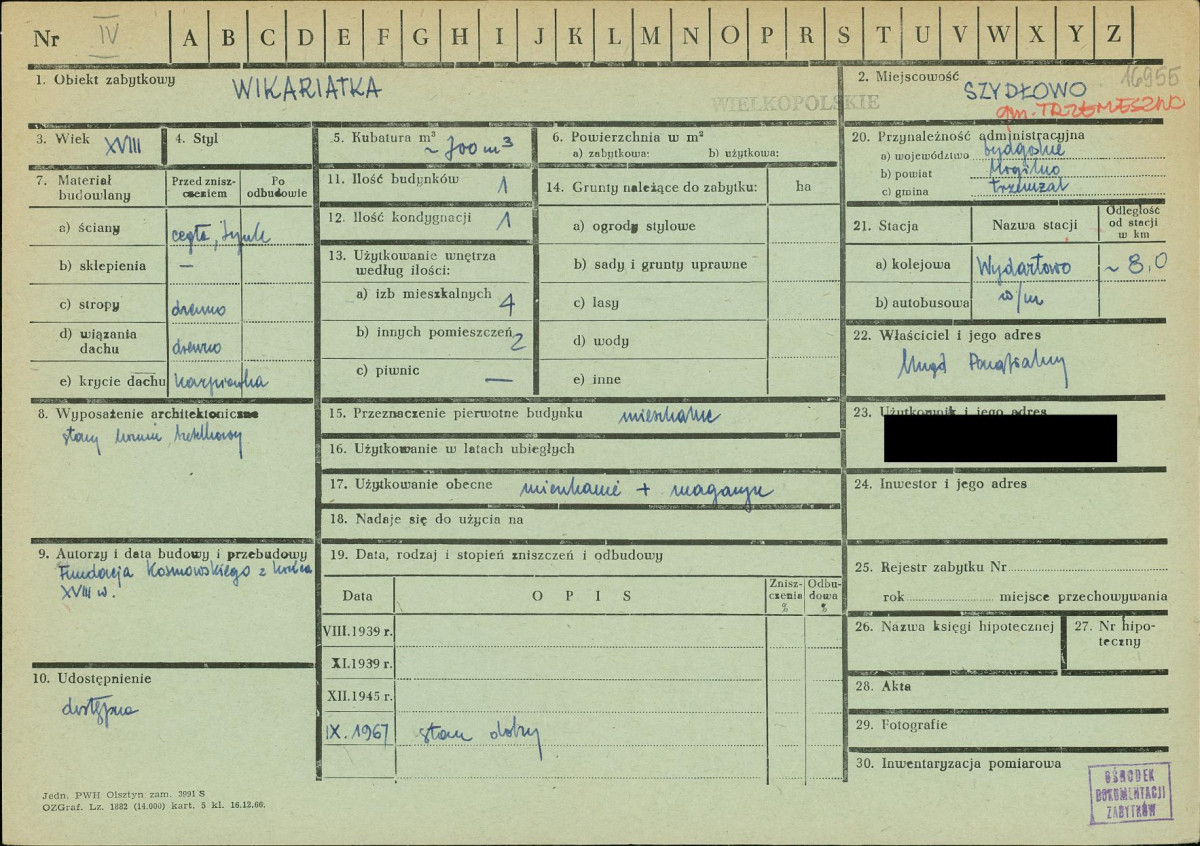 Nr IV A B C D E F G H I J K L M N O P R S T U V W X Y Z
1. Obiekt zabytkowy WIKARIATKA
WIELKOPOLSKIE
2. Miejscowość 16955
SZYDŁOWO
gm. TRZEMESZNO
3. Wiek XVIII
4. Styl
5. Kubatura m³
~ 700 m³
6. Powierzchnia w m²
a) zabytkowa: b) użytkowa:
7. Materiał budowlany
Przed zniszczeniem
Po odbudowie
a) ściany cegła, tynk
b) sklepienia —
c) stropy drewno
d) wiązania dachu drewno
e) krycie dachu karpiówka
8. Wyposażenie architektoniczne
stary
9. Autorzy i data budowy i przebudowy
Fundacja Kosmowskiego z końca
XVIII w.
10. Udostępnienie
dostępna
11. Ilość budynków 1
12. Ilość kondygnacji 1
13. Użytkowanie wnętrza
według ilości:
a) izb mieszkalnych 4
b) innych pomieszczeń 2
c) piwnic —
14. Grunty należące do zabytku: ha
a) ogrody stylowe
b) sady i grunty uprawne
c) lasy
d) wody
e) inne
15. Przeznaczenie pierwotne budynku mieszkalne
16. Użytkowanie w latach ubiegłych
17. Użytkowanie obecne mieszkanie + magazyn
18. Nadaje się do użycia na
19. Data, rodzaj i stopień zniszczeń i odbudowy
Data O P I S Zniszczenia % Odbudowa %
VIII. 1939 r.
XI. 1939 r.
XII. 1945 r.
IX. 1967 stan dobry
20. Przynależność administracyjna
a) województwo bydgoskie
b) powiat Mogilno
c) gmina Trzemżal
21. Stacja Nazwa stacji Odległość od stacji w km
a) kolejowa Wydartowo ~ 8,0
b) autobusowa w/m
22. Właściciel i jego adres
Urząd Parafialny
23. Użytkownik i jego adres
24. Inwestor i jego adres
25. Rejestr zabytku Nr
rok miejsce przechowywania
26. Nazwa księgi hipotecznej
27. Nr hipoteczny
28. Akta
29. Fotografie
30. Inwentaryzacja pomiarowa
OŚRODEK
DOKUMENTACJI
ZABYTKÓW
Jedn. PWH Olsztyn zam. 3991 S
OZGraf. Lz. 1882 (14.000) kart. 5 kl. 16.12.66.